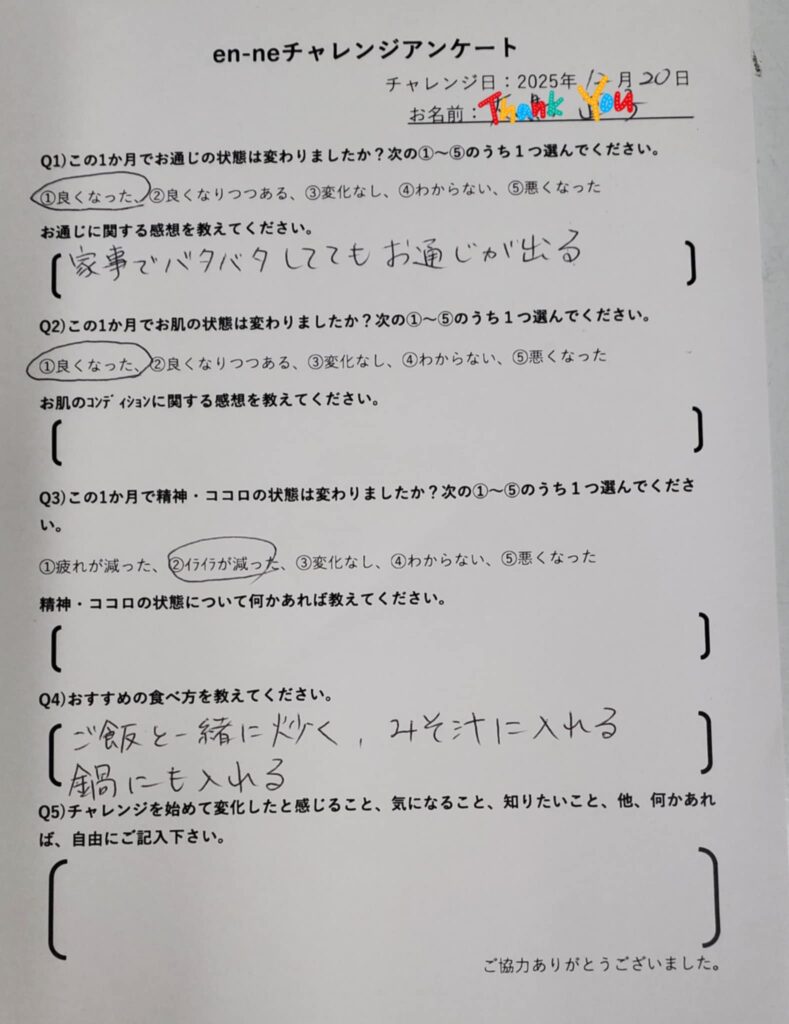 en-neチャレンジアンケート
チャレンジ日：2025年12月20日
お名前：Thank You
Q1)この1か月でお通じの状態は変わりましたか？次の①～⑤のうち１つ選んでください。
①良くなった、②良くなりつつある、③変化なし、④わからない、⑤悪くなった
お通じに関する感想を教えてください。
家事でバタバタしててもお通じが出る
Q2)この1か月でお肌の状態は変わりましたか？次の①～⑤のうち１つ選んでください。
①良くなった、②良くなりつつある、③変化なし、④わからない、⑤悪くなった
お肌のｺﾝﾃﾞｨｼｮﾝに関する感想を教えてください。
Q3)この1か月で精神・ココロの状態は変わりましたか？次の①～⑤のうち１つ選んでくださ
い。
①疲れが減った、②ｲﾗｲﾗが減った、③変化なし、④わからない、⑤悪くなった
精神・ココロの状態について何かあれば教えてください。
Q4)おすすめの食べ方を教えてください。
ご飯と一緒に炒く, みそ汁に入れる
鍋にも入れる
Q5)チャレンジを始めて変化したと感じること、気になること、知りたいこと、他、何かあれ
ば、自由にご記入下さい。
ご協力ありがとうございました。